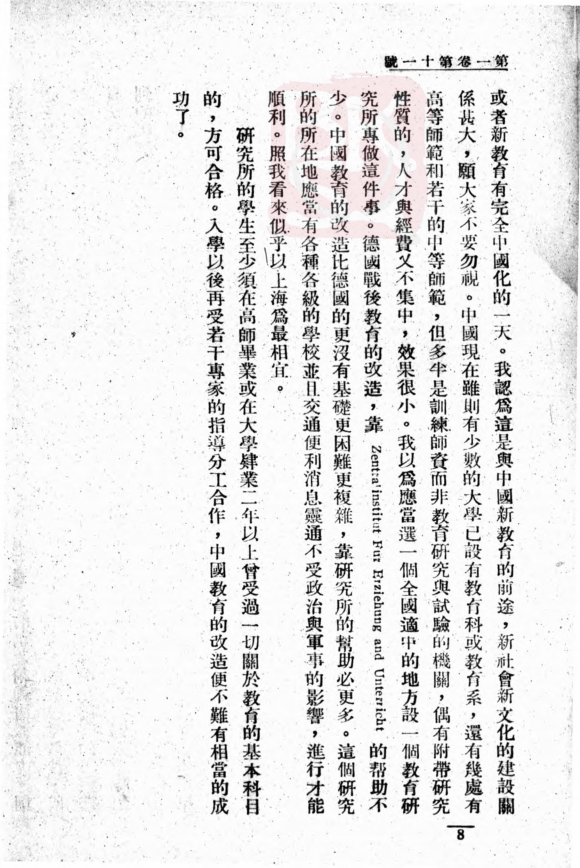 第一卷第十一號
或者新教育有完全中國化的一天。我認爲這是與中國新教育的前途，新社會新文化的建設關
係甚大，願大家不要勿視。中國現在雖則有少數的大學已設有教育科或教育系，還有幾處有
高等師範和若干的中等師範，但多半是訓練師資而非教育研究與試驗的機關，偶有附帶研究
性質的，人才與經費又不集中，效果很小。我以爲應當選一個全國適中的地方設一個教育研
究所專做這件事。德國戰後教育的改造，靠 Zentral institut Fur Erziehung and Unterricht 的幫助不
少。中國教育的改造比德國的更沒有基礎更困難更複雜，靠研究所的幫助必更多。這個研究
所的所在地應當有各種各級的學校並且交通便利消息靈通不受政治與軍事的影響，進行才能
順利。照我看來似乎以上海爲最相宜。
研究所的學生至少須在高師畢業或在大學肄業二年以上曾受過一切關於教育的基本科目
的，方可合格。入學以後再受若干專家的指導分工合作，中國教育的改造便不難有相當的成
功了。
8